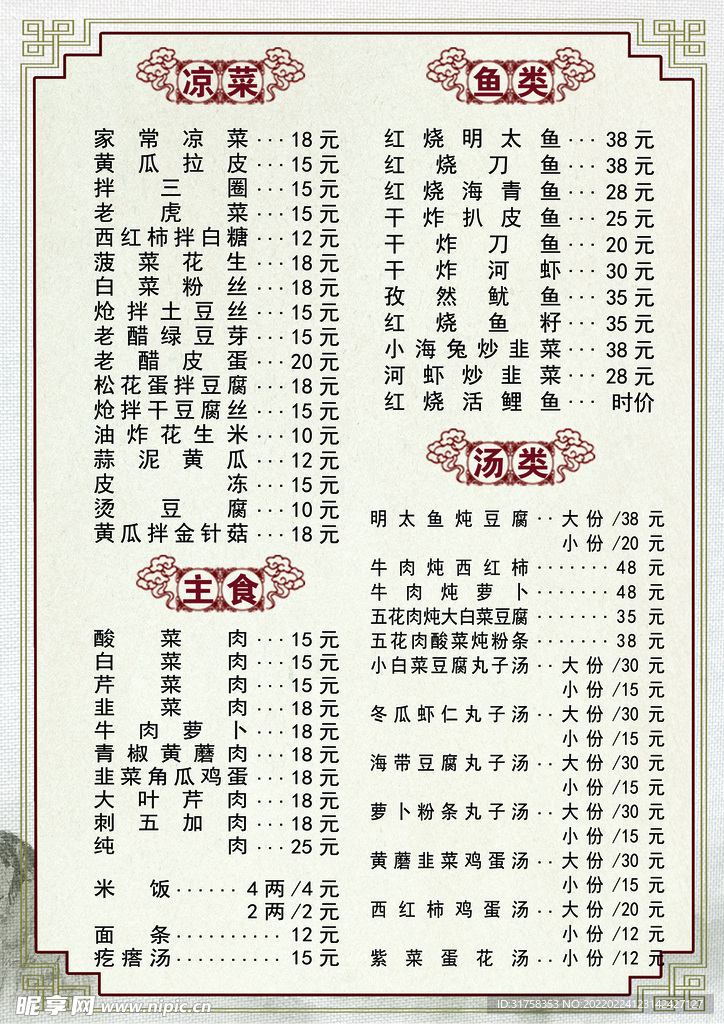 凉菜
家常凉菜···18元
黄瓜拉皮···15元
拌三圈···15元
老虎菜···15元
西红柿拌白糖···12元
菠菜花生···18元
白菜粉丝···18元
炝拌土豆丝···15元
老醋绿豆芽···15元
老醋皮蛋···20元
松花蛋拌豆腐···18元
炝拌干豆腐丝···15元
油炸花生米···10元
蒜泥黄瓜···12元
皮冻···15元
烫豆腐···10元
黄瓜拌金针菇···18元
主食
酸菜肉···15元
白菜肉···15元
芹菜肉···15元
韭菜肉···18元
牛肉萝卜···18元
青椒黄蘑肉···18元
韭菜角瓜鸡蛋···18元
大叶芹肉···18元
刺五加肉···18元
纯肉···25元
米饭······4两/4元
2两/2元
面条··········12元
疙瘩汤··········15元
鱼类
红烧明太鱼···38元
红烧刀鱼···38元
红烧海青鱼···28元
干炸扒皮鱼···25元
干炸刀鱼···20元
干炸河虾···30元
孜然鱿鱼···35元
红烧鱼籽···35元
小海兔炒韭菜···38元
河虾炒韭菜···28元
红烧活鲤鱼···时价
汤类
明太鱼炖豆腐··大份/38元
小份/20元
牛肉炖西红柿·······48元
牛肉炖萝卜·······48元
五花肉炖大白菜豆腐·······35元
五花肉酸菜炖粉条·······38元
小白菜豆腐丸子汤··大份/30元
小份/15元
冬瓜虾仁丸子汤··大份/30元
小份/15元
海带豆腐丸子汤··大份/30元
小份/15元
萝卜粉条丸子汤··大份/30元
小份/15元
黄蘑韭菜鸡蛋汤··大份/30元
小份/15元
西红柿鸡蛋汤··大份/20元
小份/12元
紫菜蛋花汤··小份/12元
昵享网 www.nipic.cn
ID:31758353 NO:20220224123142427127